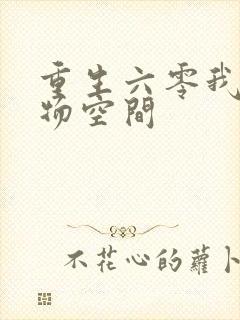 重生六零我
物空間
不花心的蘿卜